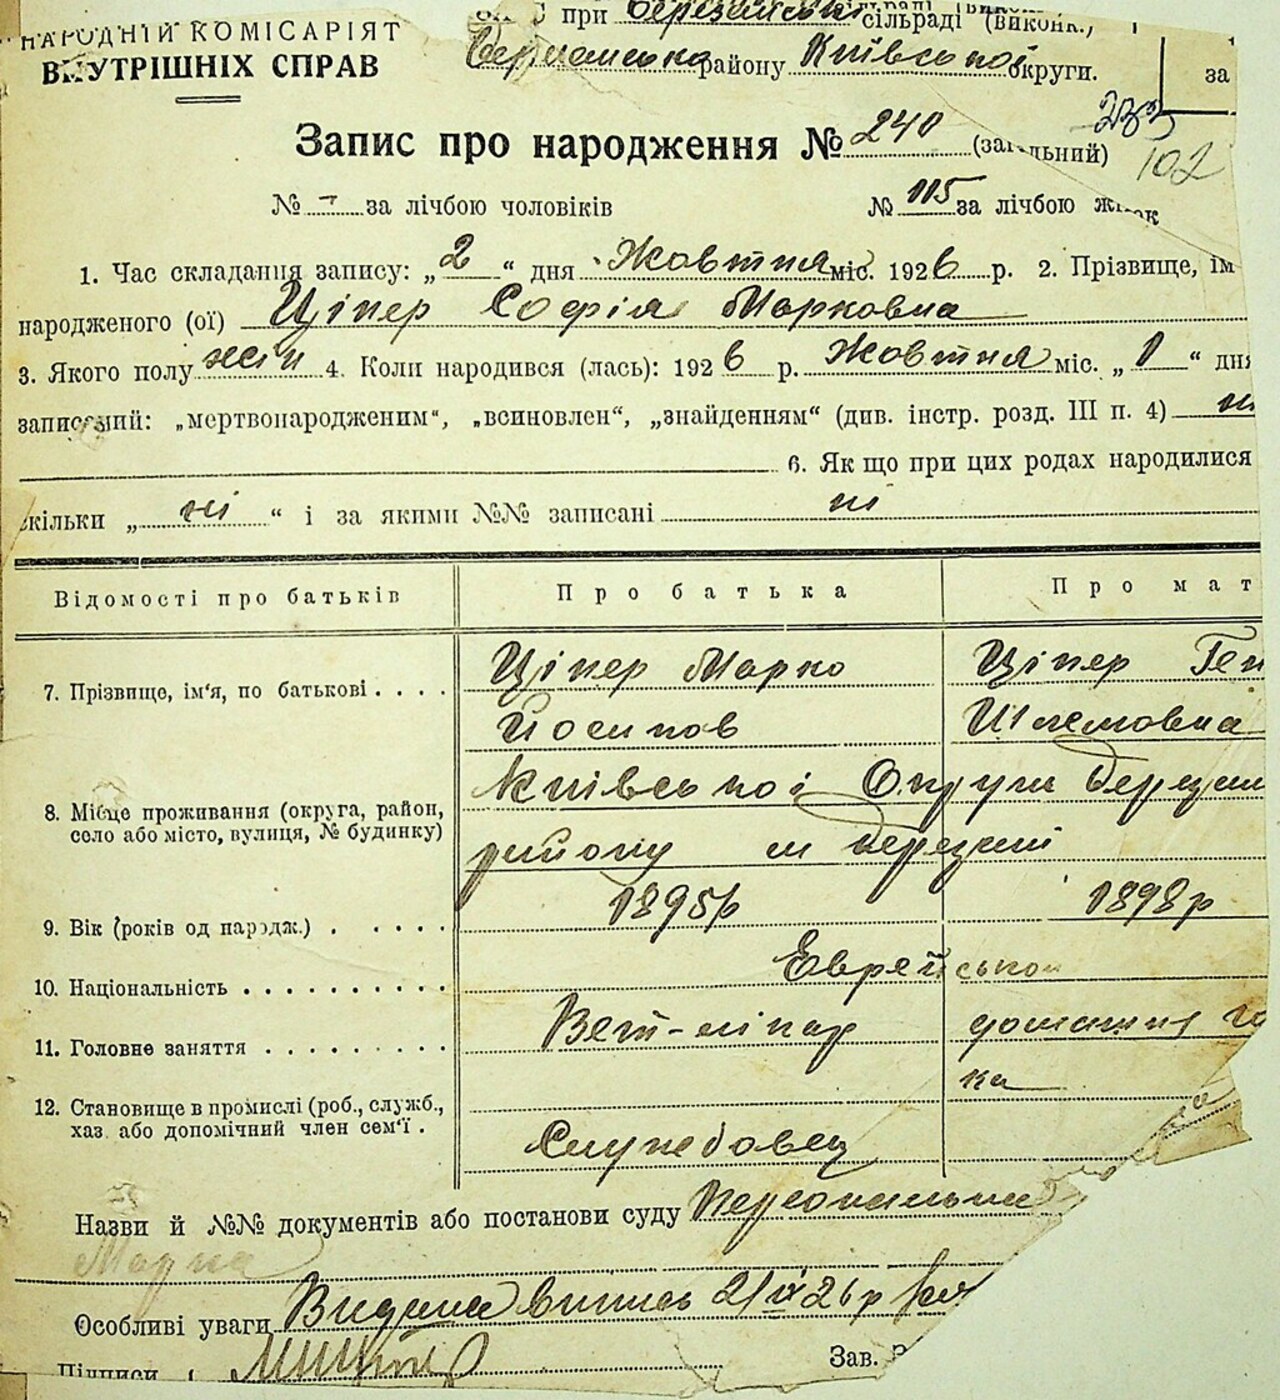 НАРОДНІЙ КОМІСАРІЯТ
ВНУТРІШНІХ СПРАВ
при сільраді (виконк.)
району Київської округи.
за
Запис про народження № 240 (загальний)
102
№ - за лічбою чоловіків № 115 за лічбою жінок
1. Час складання запису: „2“ дня Жовтня міс. 1926 р. 2. Прізвище, ім
народженого (ої) Ціпер Софія Марковна
3. Якого полу жін 4. Коли народився (лась): 1926 р. Жовтня міс. „1“ дня
записаний: „мертвонародженим“, „всиновлен“, „знайденням“ (див. інстр. розд. III п. 4)
6. Як що при цих родах народилися
скільки „ні“ і за якими №№ записані ні
Відомості про батьків Про батька Про мат
7. Прізвище, ім‘я, по батькові . . . . Ціпер Марко Ціпер Ген
Йосипов Шлемовна
8. Місце проживання (округа, район, село або місто, вулиця, № будинку) Київської Округи
району м
9. Вік (років од народж.) . . . . . 1895р 1898р
10. Національність . . . . . . . . . . Еврейської
11. Головне заняття . . . . . . . . . Вет-лікар домашня го
ка
12. Становище в промислі (роб., служб., хаз. або допомічний член сем‘ї . Службовец
Назви й №№ документів або постанови суду Персональна
Марка
Особливі уваги Видана випись 2/IX 26р
Підписи: Зав.